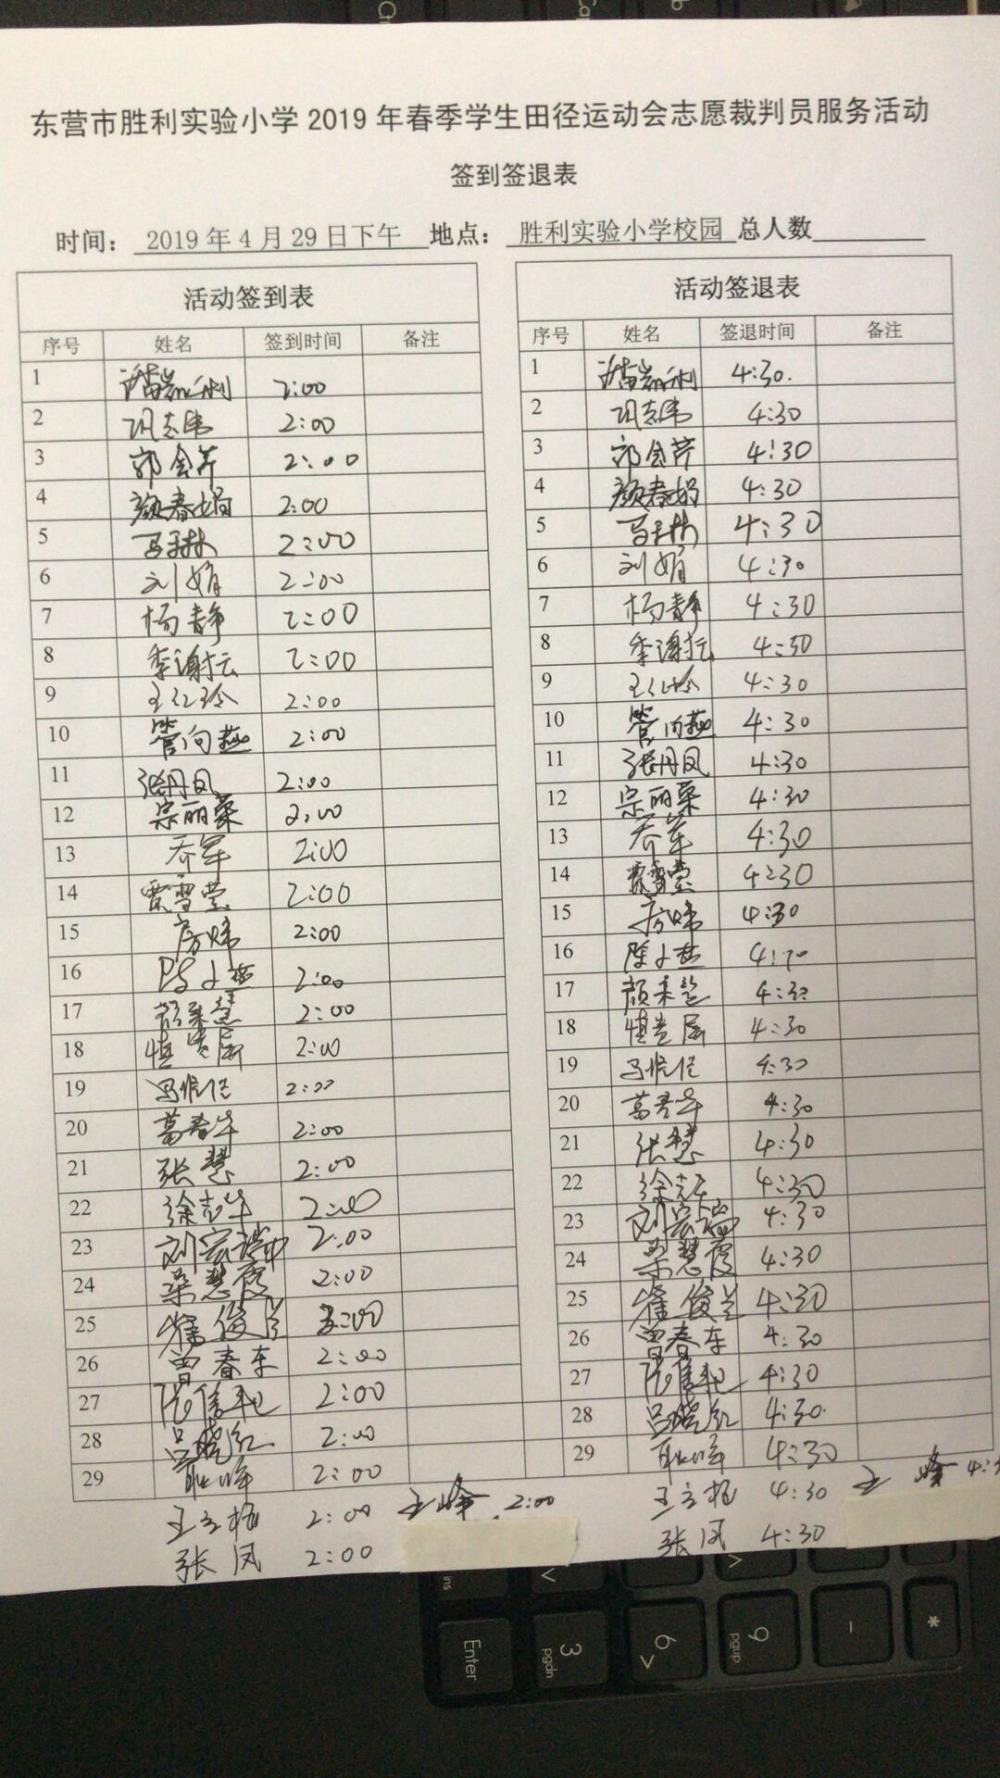 东营市胜利实验小学 2019 年春季学生田径运动会志愿裁判员服务活动
签到签退表
时间： 2019 年 4 月 29 日下午 地点： 胜利实验小学校园 总人数
活动签到表 活动签退表
序号 姓名 签到时间 备注 序号 姓名 签退时间 备注
1 2:00 1 4:30.
2 巩志伟 2:00 2 巩志伟 4:30
3 郭会芹 2:00 3 郭会芹 4:30
4 颜春娟 2:00 4 颜春娟 4:30
5 2:00 5 4:30
6 刘娟 2:00 6 刘娟 4:30
7 杨静 2:00 7 杨静 4:30
8 季谢抎 2:00 8 季谢抎 4:30
9 2:00 9 4:30
10 管向燕 2:00 10 管向燕 4:30
11 张丹凤 2:00 11 张丹凤 4:30
12 宗丽荣 2:00 12 宗丽荣 4:30
13 乔军 2:00 13 乔军 4:30
14 贾雪莹 2:00 14 贾雪莹 4:30
15 2:00 15 4:30
16 陈小燕 2:00 16 陈小燕 4:30
17 颜秉慧 2:00 17 颜秉慧 4:30
18 2:00 18 4:30
19 2:00 19 4:30
20 葛春华 2:00 20 葛春华 4:30
21 张慧 2:00 21 张慧 4:30
22 徐志华 2:00 22 徐志华 4:30
23 刘宏瑞 2:00 23 刘宏瑞 4:30
24 梁慧霞 2:00 24 梁慧霞 4:30
25 崔俊兰 2:00 25 崔俊兰 4:30
26 曾春东 2:00 26 曾春东 4:30
27 2:00 27 4:30
28 吕晓红 2:00 28 吕晓红 4:30.
29 耿峰 2:00 29 耿峰 4:30
王立梅 2:00 王峰 2:00 王立梅 4:30 王峰
张凤 2:00 张凤 4:30
ins
Enter
3
pgdn
6
>
9
pgup
-
*